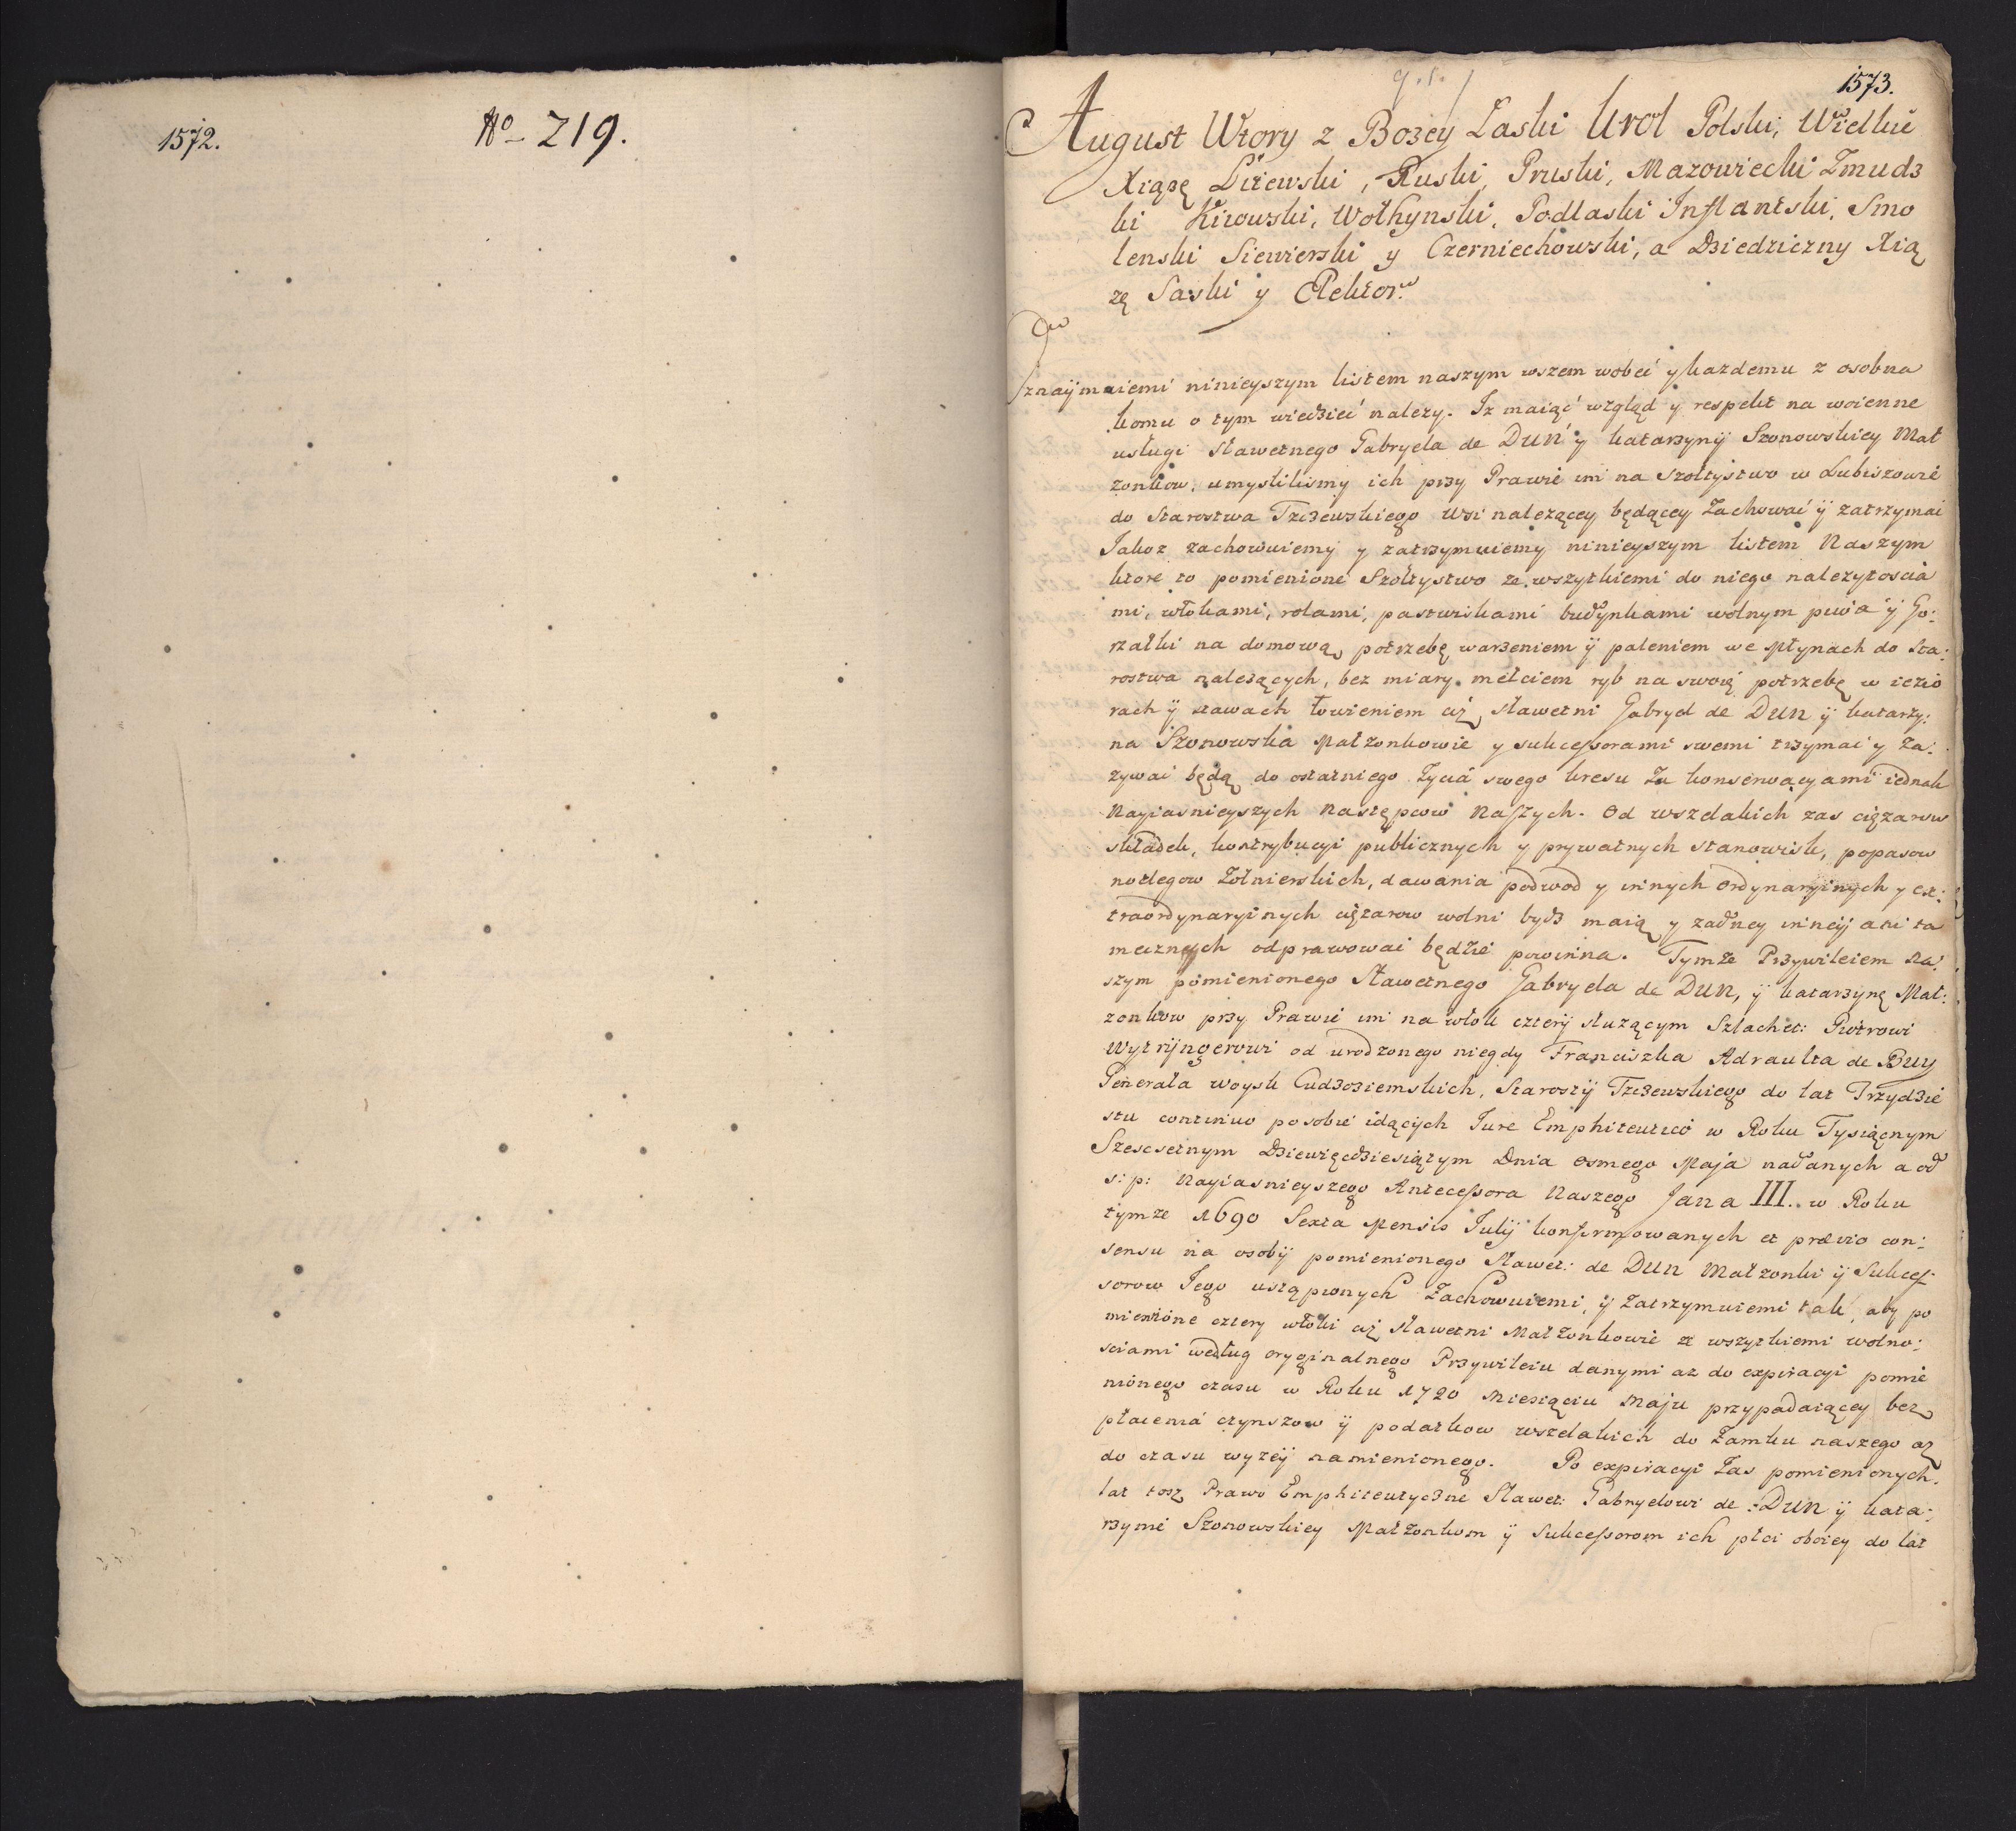 1572.
No 219.
1573.
August Wtory z Bozey Laski Krol Polski, Wielkie
Xiąże Litewski, Ruski, Pruski, Mazowiecki Zmudz
ki Kiiowski, Wołhynski, Podlaski Inflantski, Smo
lenski Siewierski y Czerniechowski, a Dziedziczny Xią
zę Saski y Elektor.
Oznaÿmuiemi ninieyszym listem naszym wszem wobec y kazdemu z osobna
komu o tym wiedzieć nalezy. Iz maiąć wzgląd y respekt na woienne
usługi Sławetnego Gabryela de Dun y katarzynÿ Szonowskiey Mał
zonkow, umyslilismy ich przy Prawie im na Szołtystwo w Lubiszowie
do Starostwa Tzczewskiego wsi nalezącey będącey Zachować ÿ zatrzymac
Jakoz zachowuiemy y zatrzymuiemy ninieyszym listem Naszym
ktore to pomienione Szołtystwo ze wszytkiemi do niego nalezytoscia
mi, włokami, rolami, pastwiskami budynkami wolnym piwa ÿ Go:
rzałki na domową potrzebę warzeniem ÿ paleniem we Młynach do Sta:
rostwa nalezących, bez miary mełciem ryb na swoię potrzebę w iezio
rach ÿ stawach łowieniem ciż sławetni Gabryel de Dun ÿ katarzy:
na Szonowska Małzonkowie y sukcessorami swemi trzymac y za:
zywac będą do ostatniego Zycia swego kresu Za konserwacyami iednak
Nayiasnieyszych Następcow Naszych. Od wszelakich zas ciężarow
składek, kontrybucyi publicznych y prywatnych stanowisk, popasow
noclegow Zołnierskich, dawania podwod y innych ordynaryinych y ex:
traordynaryinych ciężarow wolni bydz maią y zadney inneÿ ani ta
mecznych odprawowac będzie powinna. Tymze Przywileiem Na:
szym pomienionego Sławetnego Gabryela de Dun, ÿ katarzynę Mał:
zonkow przy Prawie im na włok czterÿ słuzącym Szlachet: Piotrowi
Wytrÿngerowi od urodzonego niegdy Franciszka Adraulta de Buy
Generała woysk Cudzoziemskich, Starostÿ Tzczewskiego do lat Trzydzie
stu continuo posobie idącÿch Jure Emphiteutico w Roku Tysiącnym
Szescsetnym Dziewięcdziesiątym Dnia osmego Maja nadanych a od
s: p: Nayiasnieyszego Antecessora Naszego Jana III. w Roku
tymze 1690 Sexta Mensis Julÿ konfirmowanych et prævio con:
sensu na osobÿ pomienionego Sławet: de Dun Małzonki ÿ Sukces
sorow Jego ustąpionych Zachowuiemi, ÿ Zatrzymuiemi tak, aby po
mienione cztery włoki ciż sławetni Małzonkowie ze wszytkiemi wolno:
sciami według oryginalnego Przywileiu danymi az do expiracyi pomie
nionego czasu w Roku 1720 Miesiąciu Maju przypadaiącey bez
płacenia czynszow ÿ podatkow wszelakich do Zamku naszego aż
do czasu wyzeÿ namienionego. Po expiracyi Zas pomienionych
lat tosz Prawo Emphiteutyczne Sławet: Gabryelowi de Dun ÿ kata:
rzynie Szonowskiey Małzonkom ÿ Sukcessorom ich płci oboiey do lat